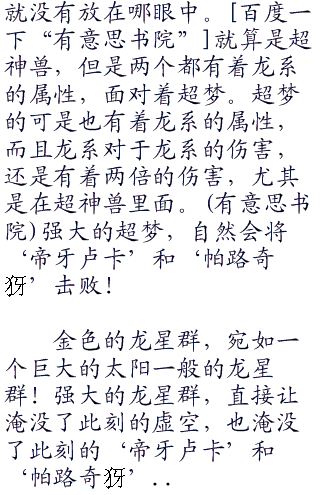 就没有放在哪眼中。[百度一
下“有意思书院”]就算是超
神兽，但是两个都有着龙系
的属性，面对着超梦。超梦
的可是也有着龙系的属性，
而且龙系对于龙系的伤害，
还是有着两倍的伤害，尤其
是在超神兽里面。(有意思书
院)强大的超梦，自然会将
‘帝牙卢卡’和‘帕路奇
犽’击败！
金色的龙星群，宛如一
个巨大的太阳一般的龙星
群！强大的龙星群，直接让
淹没了此刻的虚空，也淹没
了此刻的‘帝牙卢卡’和
‘帕路奇犽’..